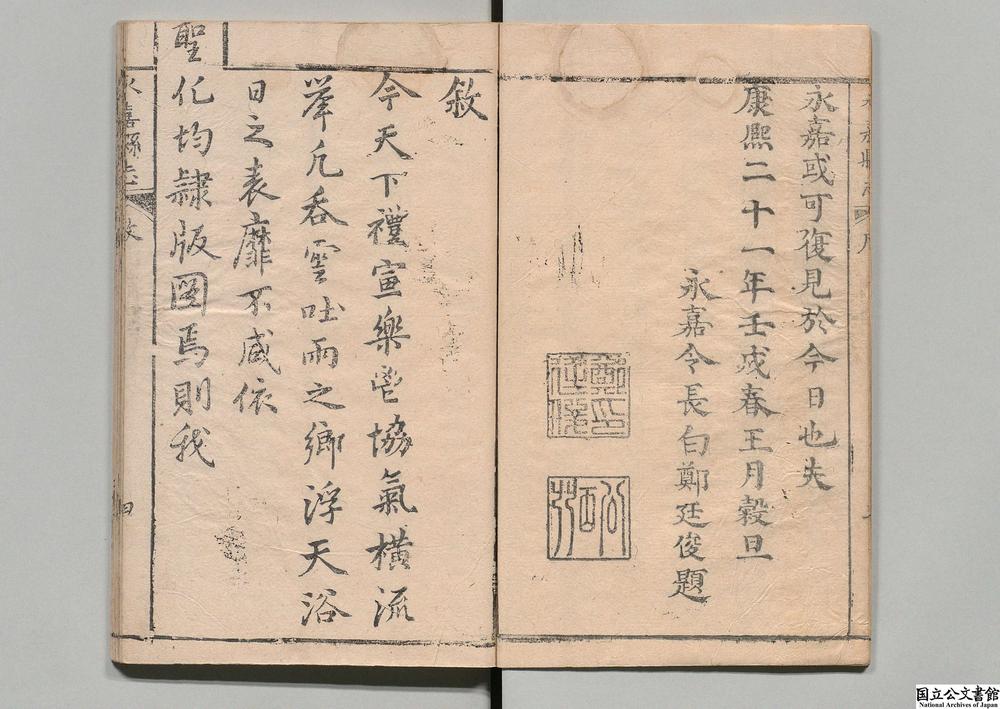 永嘉或可復見於今日也夫
康熙二十一年壬戌春王月穀旦
永嘉令長白鄭廷俊題
鄭廷俊印
敘
今天下禮宣樂鬯協氣橫流
举凡吞雲吐雨之鄉浮天浴
日之表靡不咸依
聖化均隸版圖焉則我
永嘉縣志 敘 四
国立公文書館
National Archives of Japan